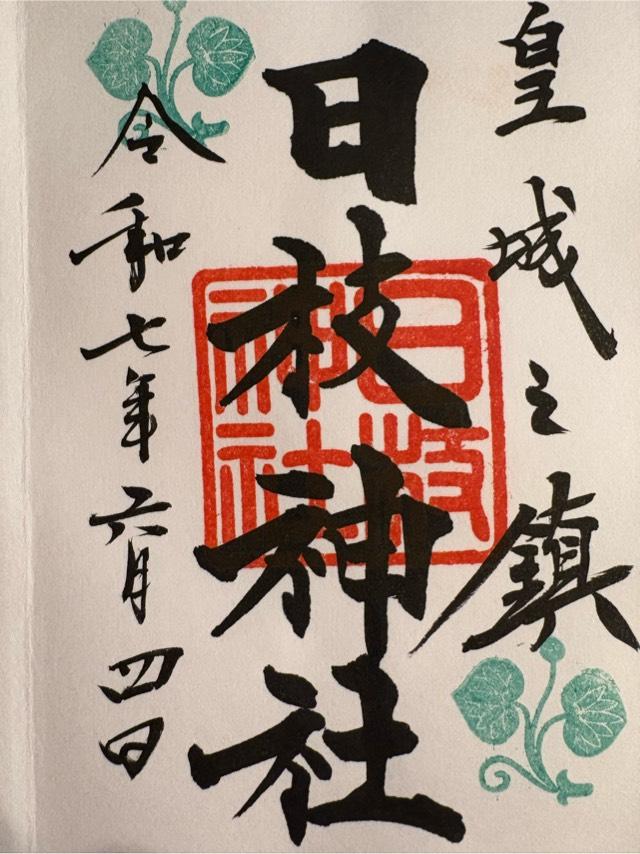 皇城之鎮
日枝神社
日枝
神社
令和七年六月四日